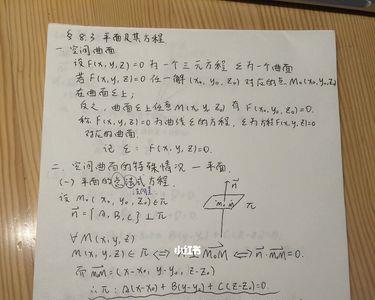 §8.3 平面及其方程
一. 空间曲面
设 F(x,y,z)=0 为一个三元方程 Σ为一个曲面
若 F(x,y,z)=0 任一解 (x₀, y₀, z₀) 对应的点 M₀(x₀,y₀,z₀)
在曲面Σ上;
反之, 曲面Σ上任意 M(x,y,z) 有 F(x₀,y₀,z₀)=0.
称 F(x,y,z)=0 为曲线Σ的方程, Σ为方程F(x,y,z)=0
对应的曲面.
记 Σ: F(x,y,z)=0.
二. 空间曲面的特殊情况 — 平面.
(一) 平面的点法式方程.
法向量
设 M₀(x₀, y₀, z₀)∈π
n⃗={A, B, C}⊥π
n⃗
M₀ M π
∀ M(x,y,z)
M(x,y,z)∈π ⟺ n⃗⊥M₀M⃗ ⟺ n⃗·M₀M⃗=0.
小红书
而 M₀M⃗=(x-x₀, y-y₀, z-z₀)
∴π: A(x-x₀)+B(y-y₀)+C(z-z₀)=0.